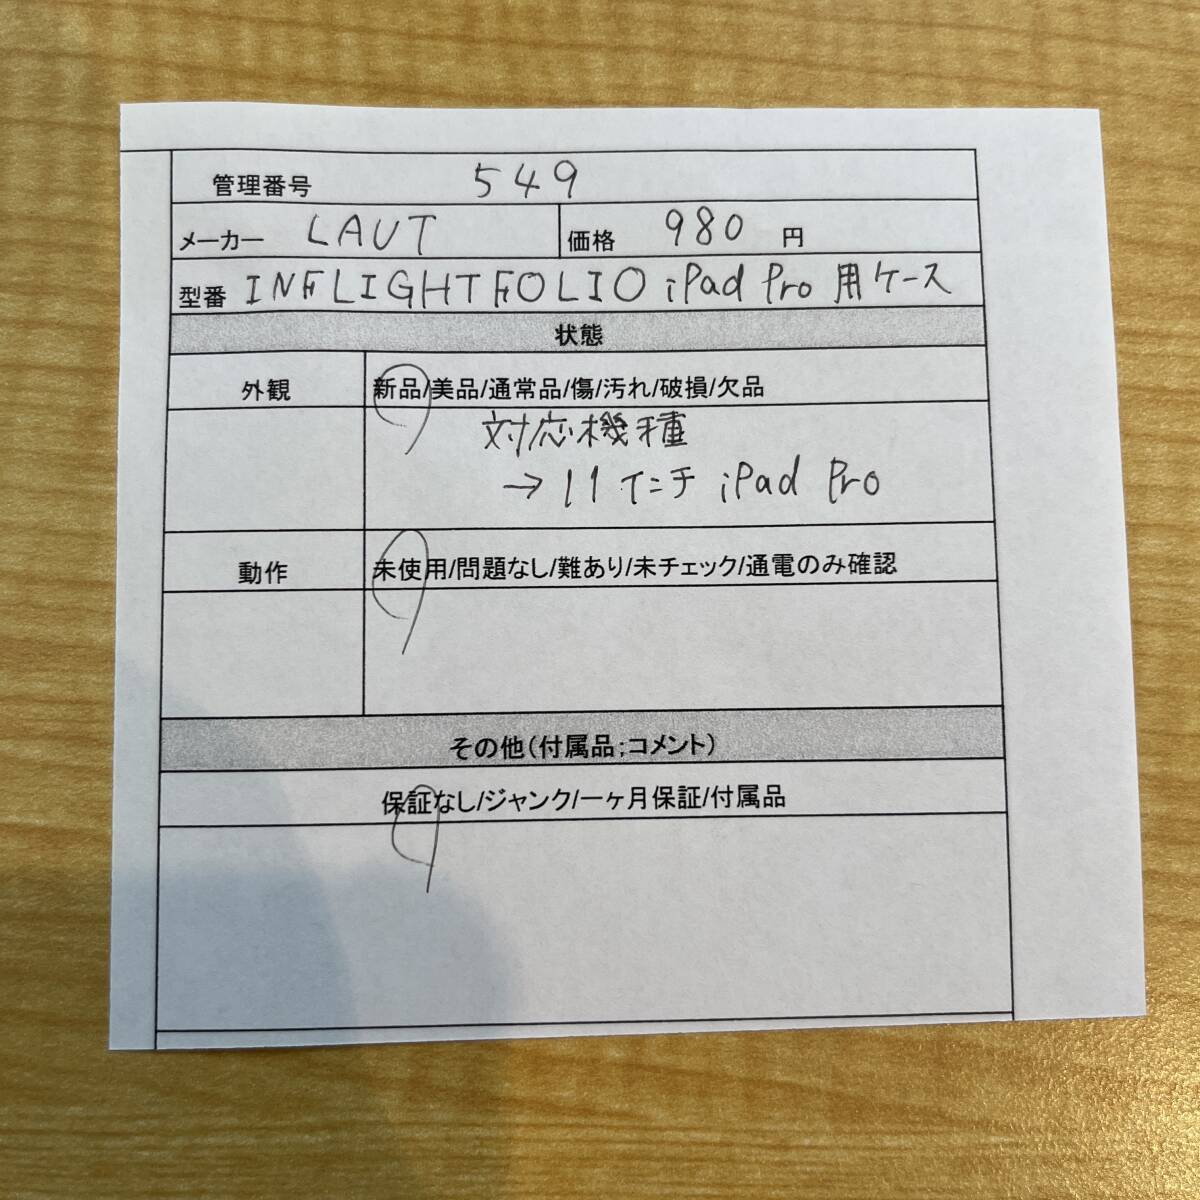 管理番号 549
メーカー LAUT 価格 980 円
型番 INFLIGHTFOLIO iPad Pro 用ケース
状態
外観 新品/美品/通常品/傷/汚れ/破損/欠品
対応機種
→11インチ iPad Pro
動作 未使用/問題なし/難あり/未チェック/通電のみ確認
その他(付属品;コメント)
保証なし/ジャンク/一ヶ月保証/付属品